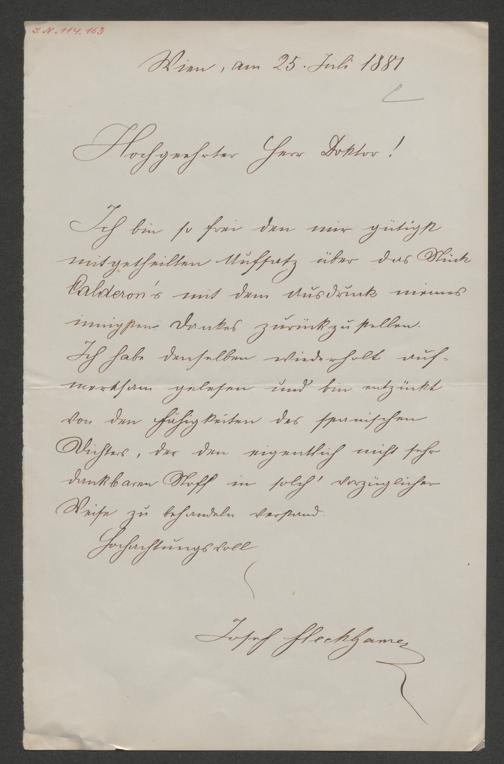 I.N. 114.163
Wien, am 25. Juli 1881
Hochgeehrter Herr Doktor!
Ich bin so frei den mir gütigst
mitgetheilten Aufsatz über das Stück
Calderon's mit dem Ausdruck meines
innigsten Dankes zurückzustellen.
Ich habe denselben wiederholt auf-
merksam gelesen und bin entzückt
von den Fähigkeiten des spanischen
Dichters, der den eigentlich nicht sehr
dankbaren Stoff in solch' vorzüglicher
Weise zu behandeln verstand.
Hochachtungsvoll
Josef